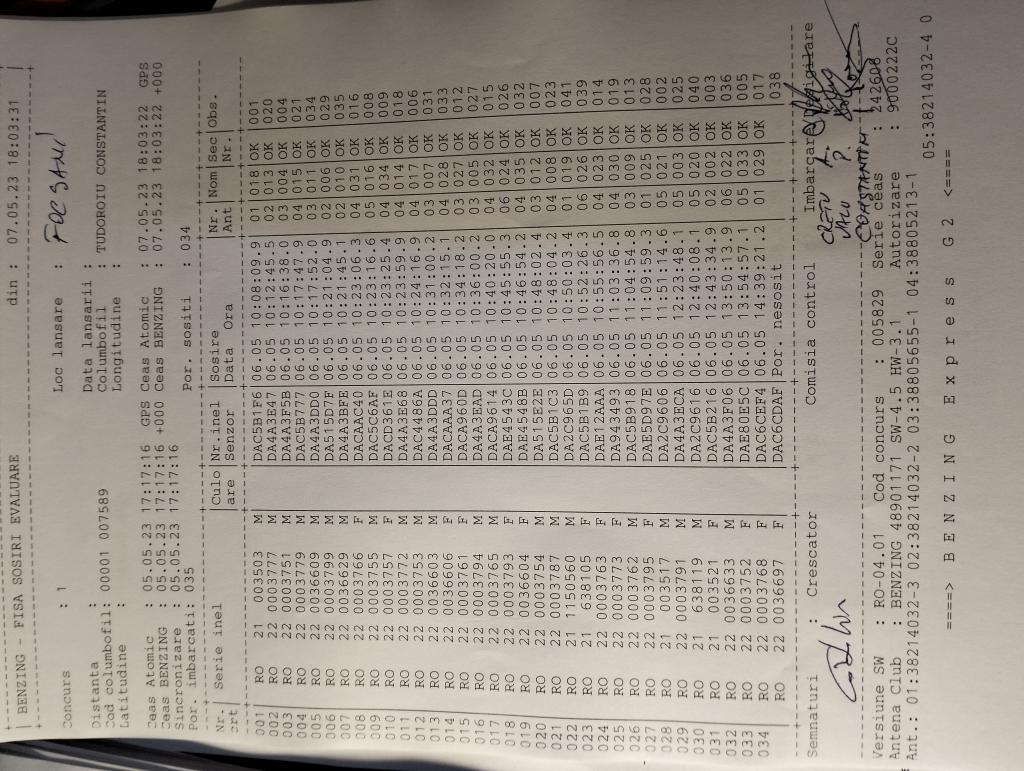 BENZING - FISA SOSIRI EVALUARE din : 07.05.23 18:03:31
Concurs : 1 Loc lansare : FOCSANI
Distanta : Data lansarii :
Cod columbofil: 00001 007589 Columbofil : TUDOROIU CONSTANTIN
Latitudine : Longitudine :
Ceas Atomic : 05.05.23 17:17:16 GPS Ceas Atomic : 07.05.23 18:03:22 GPS
Ceas BENZING : 05.05.23 17:17:16 +000 Ceas BENZING : 07.05.23 18:03:22 +000
Sincronizare : 05.05.23 17:17:16
Por. imbarcati: 035 Por. sositi : 034
Nr. | Serie inel | Culo | Nr.inel | Sosire | Nr. | Nom | Sec | Obs.
crt. | are | Senzor | Data Ora | Ant | Nr.
001 RO 21 003503 M DAC5B1F6 06.05 10:08:09.9 01 018 OK 001
002 RO 22 0003777 M DA4A3E47 06.05 10:12:45.5 02 013 OK 020
003 RO 22 0003751 M DA4A3F5B 06.05 10:16:38.0 03 004 OK 004
004 RO 22 0003779 M DAC5B777 06.05 10:17:47.9 04 015 OK 021
005 RO 22 0036609 M DA4A3DD0 06.05 10:17:52.0 03 011 OK 034
006 RO 22 0003799 M DA515D7F 06.05 10:21:04.9 02 006 OK 029
007 RO 22 0036629 M DA4A3BFE 06.05 10:21:45.1 02 010 OK 035
008 RO 22 0003766 F DACAAC40 06.05 10:23:06.3 04 031 OK 016
009 RO 22 0003755 M DAC5C6AF 06.05 10:23:16.6 05 016 OK 008
010 RO 22 0003757 F DACD361E 06.05 10:23:25.4 04 034 OK 009
011 RO 22 0003772 M DA4A3E68 06.05 10:23:59.9 04 014 OK 018
012 RO 22 0003753 M DAC4486A 06.05 10:24:16.9 04 017 OK 006
013 RO 22 0036603 M DA4A3DDD 06.05 10:31:00.2 03 007 OK 031
014 RO 22 0036606 F DACAAA37 06.05 10:32:15.1 04 028 OK 033
015 RO 22 0003761 F DACA960D 06.05 10:34:18.2 03 027 OK 012
016 RO 22 0003794 M DA4A3EAD 06.05 10:36:00.2 03 005 OK 027
017 RO 22 0003765 M DACA9614 06.05 10:40:20.0 04 032 OK 015
018 RO 22 0003793 F DAE4543C 06.05 10:45:55.3 06 024 OK 026
019 RO 22 0036604 F DAE4548B 06.05 10:46:54.2 04 035 OK 032
020 RO 22 0003754 M DA515E2E 06.05 10:48:02.4 03 012 OK 007
021 RO 22 0003787 M DAC5B1C3 06.05 10:48:04.2 04 008 OK 023
022 RO 21 1150560 M DA2C965D 06.05 10:50:03.4 01 019 OK 041
023 RO 21 638105 F DAC5B1B9 06.05 10:52:26.3 06 026 OK 039
024 RO 22 0003763 F DAE12AAA 06.05 10:55:56.5 04 023 OK 014
025 RO 22 0003773 F DA943493 06.05 11:03:36.8 04 030 OK 019
026 RO 22 0003762 M DAC5B918 06.05 11:04:54.8 03 009 OK 013
027 RO 22 0003795 F DAE5D97E 06.05 11:09:53.3 01 025 OK 028
028 RO 21 003517 M DA2C9606 06.05 11:51:14.6 05 021 OK 002
029 RO 22 0003791 M DA4A3ECA 06.05 12:23:48.1 05 003 OK 025
030 RO 21 638119 M DA2C9616 06.05 12:40:08.1 05 020 OK 040
031 RO 21 003521 F DAC5B216 06.05 12:43:34.9 02 002 OK 003
032 RO 22 0036633 M DA4A3F06 06.05 13:50:13.9 06 022 OK 036
033 RO 22 0003752 F DAE60E5C 06.05 13:54:57.1 05 033 OK 005
034 RO 22 0003768 F DAC6CEF4 06.05 14:39:21.2 01 029 OK 017
RO 22 0036697 F DAC6CDAF Por. nesosit 038
Semnaturi : Crescator Comisia control Imbarcare
CRETU A.
VALU P.
CONSTANTIN
Versiune SW : RO-04.01 Cod concurs : 005829 Serie ceas : 242608
Antena Club : BENZING 48901171 SW-4.5 HW-3.1 Autorizare : 9000222C
Ant.: 01:38214032-3 02:38214032-2 03:38805655-1 04:38805213-1 05:38214032-4 0
====> B E N Z I N G E x p r e s s G 2 <====